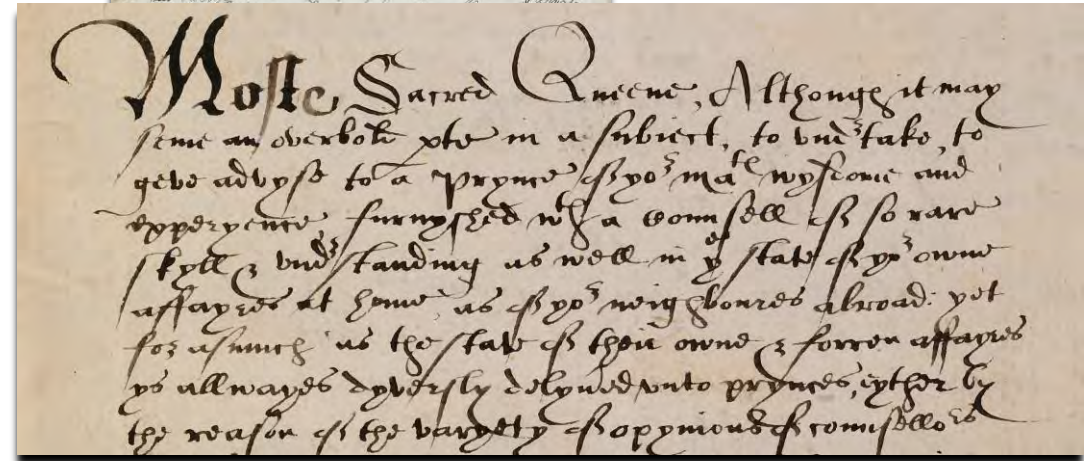 Moste Sacred Queene, Although it may
seme an overbolde pte in a subiect, to vndtake, to
geve advyse to a Prynce of yor matie wysdome and
experyence, furnyshed wth a Counsell of so rare
skyll & vndstanding as well in ye state of yor owne
affayres at home, as of yor neighboures abroad: yet
for asmuch as the state of their owne & forren affayres
ys allwayes dyversly delyuered vnto prynces, eyther by
the reason of the varyety of opynions of counsellors